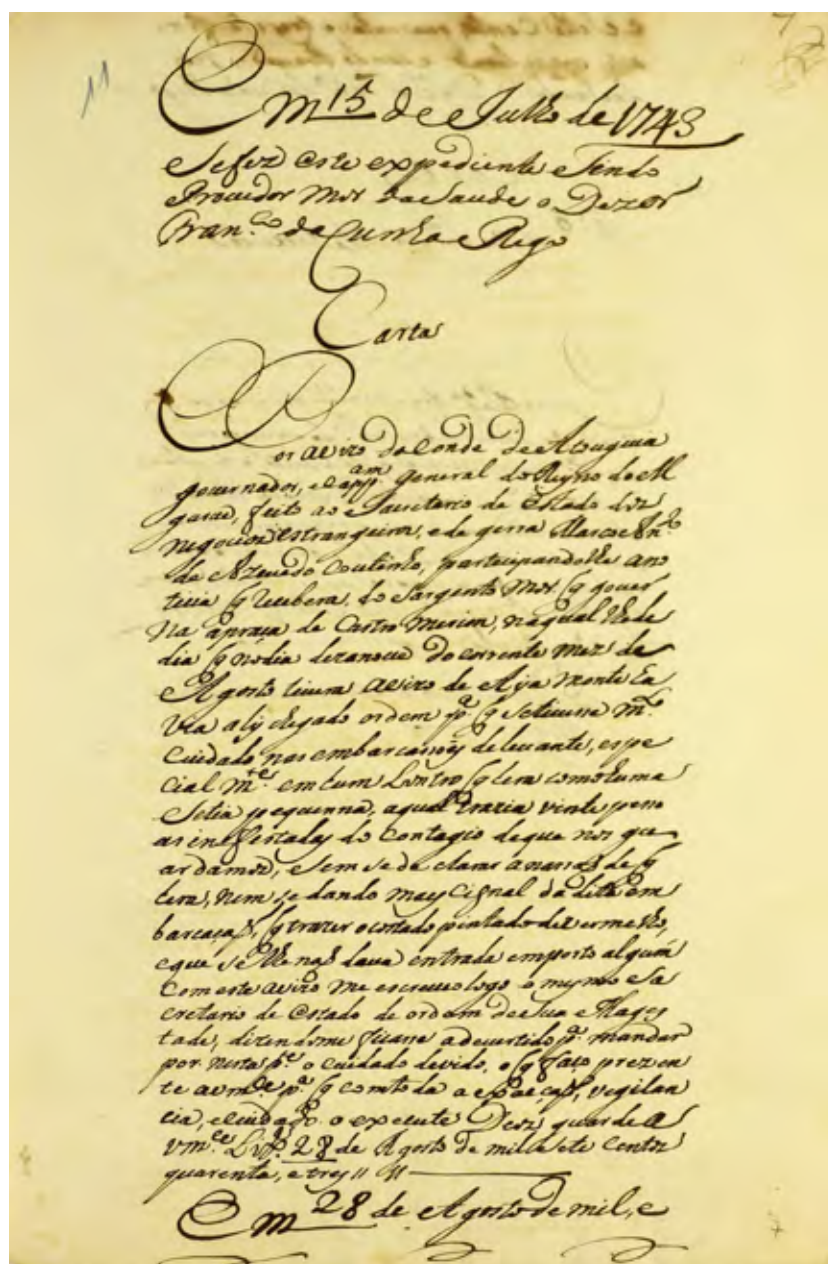 11
Em 15 de Julho de 1743
Se fez este expediente Sendo
Provedor Mor da Saude o Dezor
Fran.co da Cunha e Rego
Carta
Por avizo do Conde de Atouguia
governador, e Capp.am General do Reyno do Al
garve, feito ao Secretario de Estado dos
negocios estrangeiros, e de guerra Marco An.to
de Azevedo Coutinho, participandolhe a no
ticia q recebera, do Sargento Mor q gover
na a praça de Castro Merim, na qual lhe de
dia q no dia dezanove do corrente mez de
Agosto tivera avizo de Aya monte ha
via aly chegado ordem p.a q se tivesse m.to
cuidado nas embarcassoÿs de levante, espe
cial m.te em hum Londro q hera como huma
Setia pequenna, a qual trazia vinte peso
as infestadas do contagio de que nos gu
ardamos, e sem se declarar a nassaõ de q
hera, nem se dando mays cignal da ditta em
barcaçaõ, q trazer o costado pintado de vermelho,
e que se lhe naõ dava entrada em porto algum
Com este avizo me escreveo logo o mesmo Se
cretario de Estado de ordem de Sua Mages
tade, dizendome ficasse advertido p.a mandar
por nesta p.te o cuidado devido, o q faço prezen
te a vm.ce p.a q com toda a vigilan
cia, e cuidado o execute Deos guarde a
vm.ce Lix.a 28 de Agosto de mil e sete centos
quarenta, e tres // //
Em 28 de Agosto de mil, e